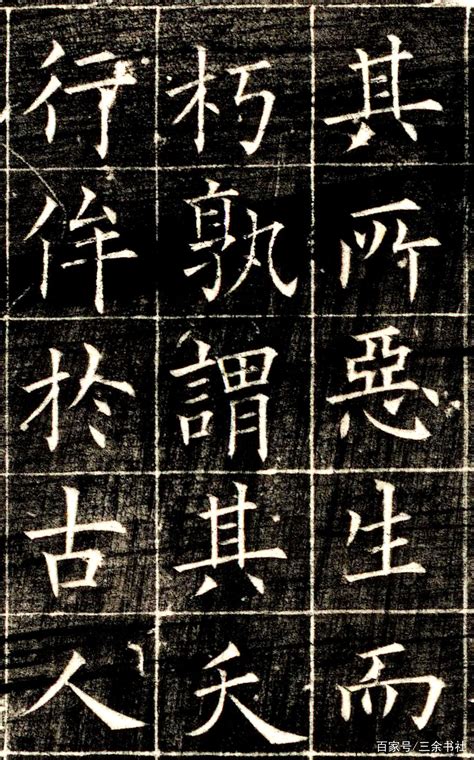 其所惡生而
朽孰謂其夭
行侔於古人
百家号/三余书社